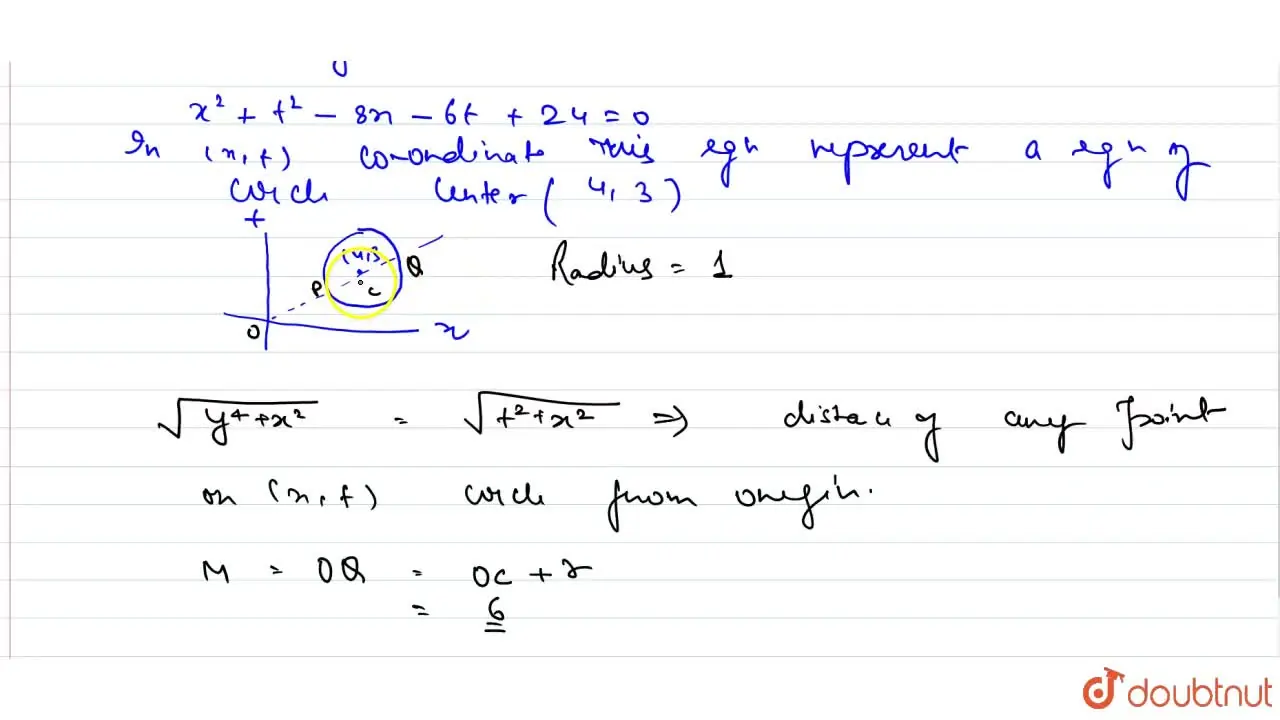 x² + t² - 8x - 6t + 24 = 0
In (x, t) co-ordinate this eqn represent a eqn of
circle Center ( 4, 3 )
t
(4,3
Q
P
C
O
x
Radius = 1
√y⁴+x² = √t²+x² ⇒ distance of any point
on (x, t) circle from origin.
M = OQ = OC + r
= 6
doubtnut